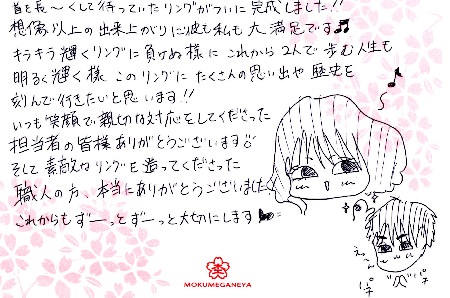 首を長〜くして待っていたリングがついに完成しました!!
想像以上の出来上がりに彼も私も大満足です♫
キラキラ輝くリングに負けぬ様にこれから2人で歩む人生も
明るく輝く様、このリングにたくさんの思い出や歴史を
刻んで行きたいと思います!!
いつも笑顔で親切な対応をしてくださった
担当者の皆様ありがとうございます
そして素敵なリングを造ってくださった
職人の方、本当にありがとうございました
これからもずーっとずーっと大切にします
え〜ん
パチ
パチ
MOKUMEGANEYA